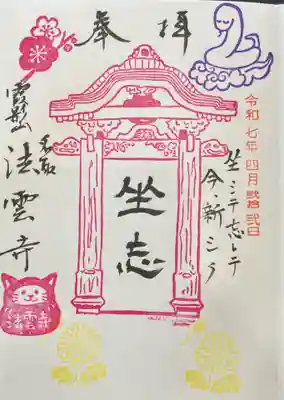 奉拝
令和七年四月弐拾弐日
坐ミテ志シテ
今、新シク
坐志
法雲寺
法雲寺